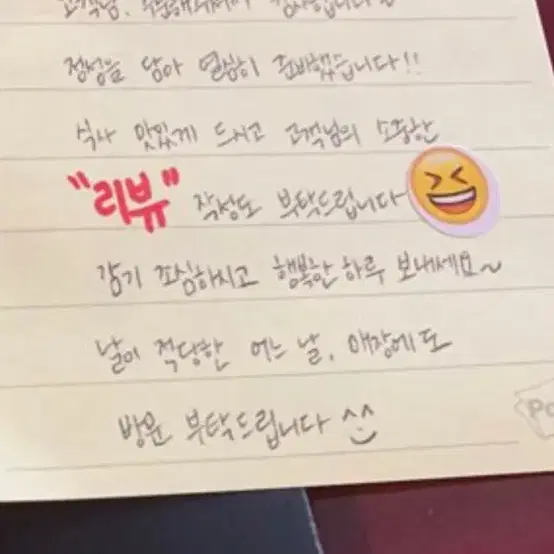 고객님, 주문해주셔서 감사합니다
정성을 담아 열심히 준비했습니다!!
식사 맛있게 드시고 고객님의 소중한
"리뷰" 작성도 부탁드립니다
감기 조심하시고 행복한 하루 보내세요~
날이 적당한 어느 날, 매장에도
방문 부탁드립니다 ^^